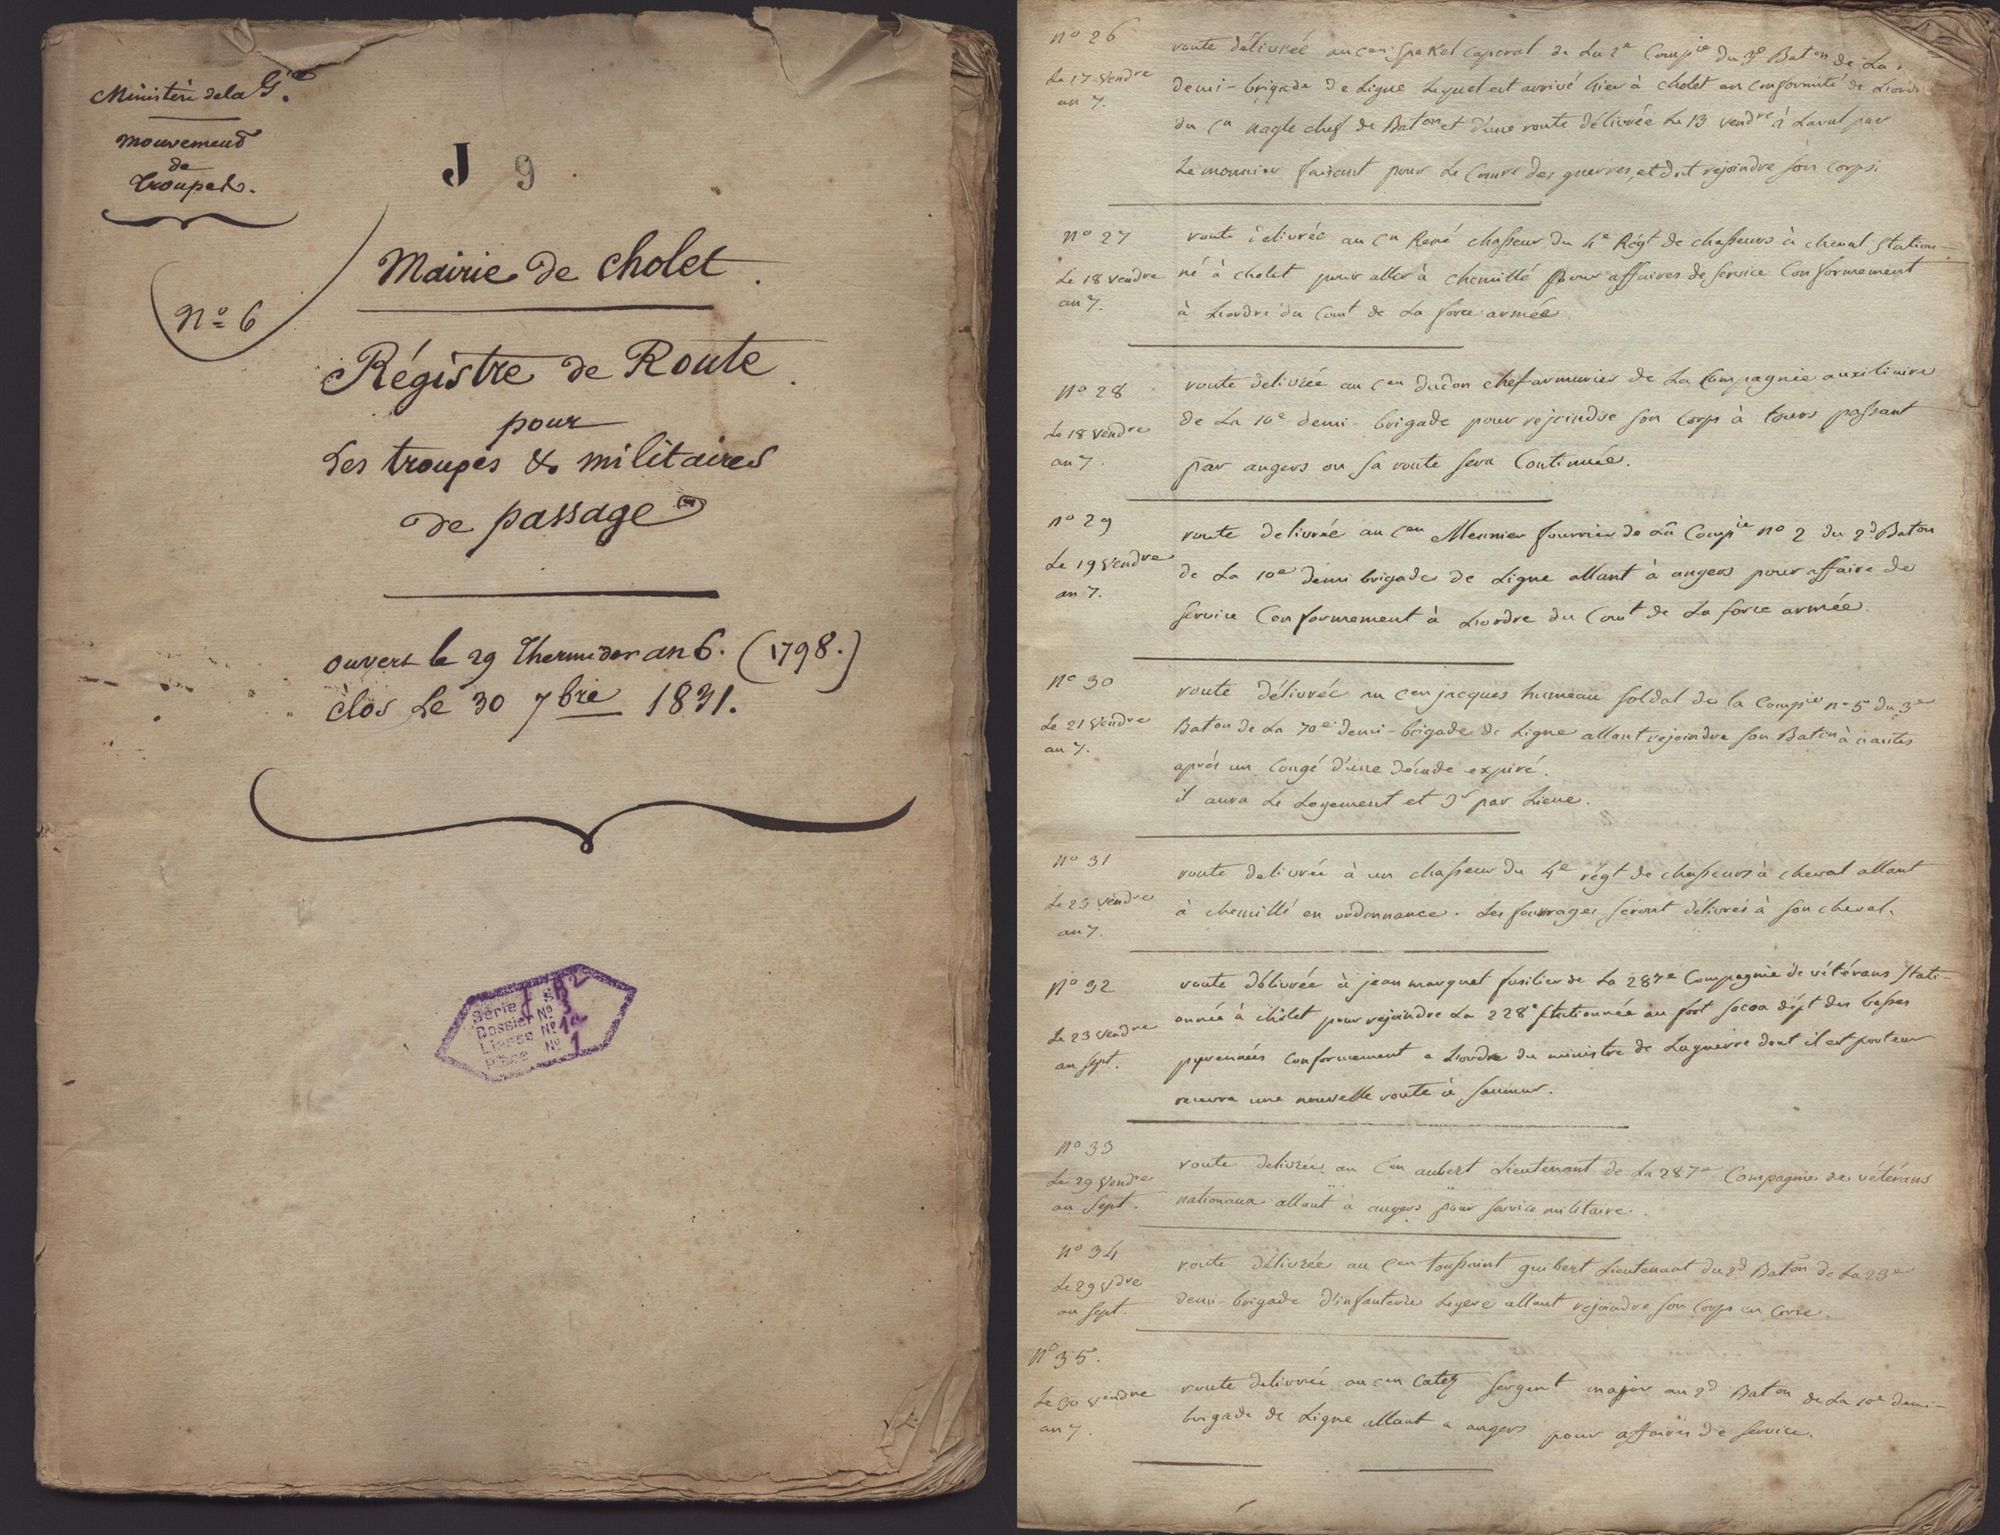 Ministère de la Gre.
Mouvement
de
Troupes.
J 9
No 6
Mairie de Cholet.
Régistre de Route
pour
Les troupes & militaires
de passage
ouvert le 29 Thermidor an 6. (1798.)
clos Le 30 7bre 1831.
Série
Dossier No 3
Liasse No 1a
Pièce No 1
no 26
Le 17 vendre
an 7.
route délivrée au cen caporal de La 2e Compie du 3e Baton de La
demi-brigade de Ligne Lequel est arrivé hier à cholet en conformité de L'ordre
du cn nagle chef de Baton et d'une route délivrée Le 13 vendre à Laval par
Lemonnier faisant pour Le Comre des guerres, et doit rejoindre son corps.
no 27
Le 18 vendre
an 7.
route délivrée au cn René chasseur du 4e Régt de chasseurs à cheval station-
né à cholet pour aller à chemillé pour affaires de service Conformement
à L'ordre du Comt de La force armée
no 28
Le 18 vendre
an 7.
route délivrée au cen dudon chef armurier de La Compagnie auxiliaire
de La 10e demi-brigade pour rejoindre son Corps à tours passant
par angers ou sa route sera Continuée.
no 29
Le 19 vendre
an 7.
route delivrée au cen Meunier fourrier de La Compie no 2 du 2d Baton
de La 10e demi brigade de Ligne allant à angers pour affaire de
service Conformement à L'ordre du Comt de La force armée.
no 30
Le 21 vendre
an 7.
route délivrée au cen jacques humeau soldat de la Compie no 5 du 3e
Baton de La 70e demi-brigade de Ligne allant rejoindre son Baton à nantes
après un Congé d'une décade expiré.
il aura Le Logement et 3s par Lieue.
no 31
Le 23 vendre
an 7.
route delivrée à un chasseur du 4e régt de chasseurs à cheval allant
à chemillé en ordonnance. Les fourrages seront délivrés à son cheval.
No 32
Le 23 vendre
an sept.
route délivrée à jean marquet fusilier de La 287e Compagnie de vétérans stati-
onnée à cholet pour rejoindre La 228e stationnée au fort socoa dépt des basses
pyrennées conformement a L'ordre du ministre de La guerre dont il est porteur
recevra une nouvelle route à saumur.
No 33
Le 29 vendre
an sept.
route délivrée au Cen aubert Lieutenant de La 287e Compagnie de vétérans
nationaux allant à angers pour service militaire.
No 34
Le 29 vdre
an sept.
route délivrée au cen toussaint guibert Lieutenant du 2d Baton de La 23e
demi-brigade d'infanterie Legere allant rejoindre son Corps en Corse.
No 35.
Le 30 vendre
an 7
route delivrée au cen Catez sergent major au 2d Baton de La 10e demi-
brigade de Ligne allant a angers pour affaires de service.